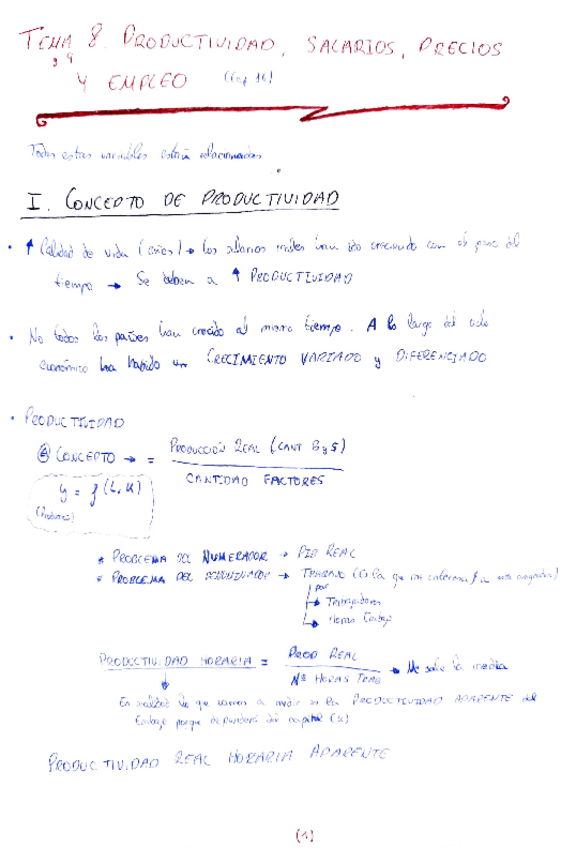 TEMA 8. PRODUCTIVIDAD, SALARIOS, PRECIOS
y 9
Y EMPLEO (Cap 16)
Todas estas variables están relacionadas.
I. CONCEPTO DE PRODUCTIVIDAD
• ↑ Calidad de vida (años) → los salarios reales han ido creciendo con el paso del
tiempo → Se deben a ↑ PRODUCTIVIDAD
• No todos los países han crecido al mismo tiempo. A lo largo del ciclo
económico ha habido un CRECIMIENTO VARIADO y DIFERENCIADO
• PRODUCTIVIDAD
CONCEPTO → = PRODUCCIÓN REAL (CANT B y S)
CANTIDAD FACTORES
y = f (L, K)
* PROBLEMA DEL NUMERADOR → PIB REAL
* PROBLEMA DEL DENOMINADOR → TRABAJO (Es la que nos interesa
por
→ Trabajadores
→ Horas trabajo
PRODUCTIVIDAD HORARIA = PROD REAL → Me sale la media
Nº HORAS TRAB
En realidad lo que vamos a medir es la PRODUCTIVIDAD APARENTE del
trabajo porque dependerá del capital (K)
PRODUCTIVIDAD REAL HORARIA APARENTE
(1)